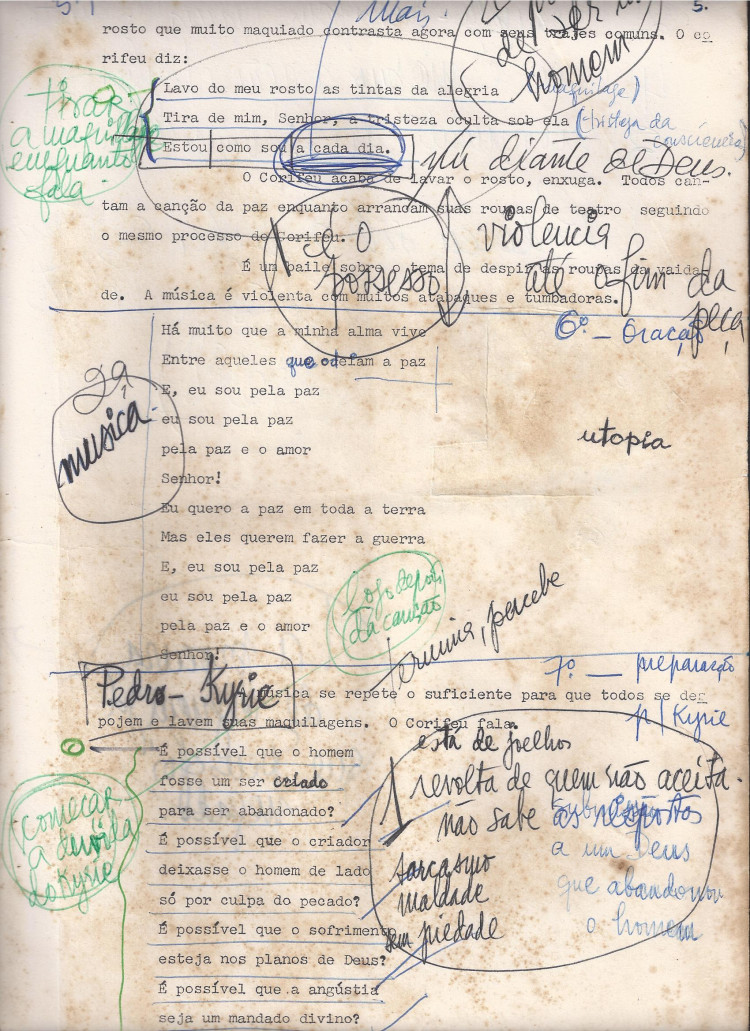 5.
Mais.
de ser um
homem
rosto que muito maquiado contrasta agora com seus trajes comuns. O co
rifeu diz:
Lavo do meu rosto as tintas da alegria (maquilage)
Tira de mim, Senhor, a tristeza oculta sob ela (tristeza da
consciência)
Estou como sou a cada dia. nú diante de Deus.
tirar
a maquilage
enquanto
fala.
O Corifeu acaba de lavar o rosto, enxuga. Todos can-
tam a canção da paz enquanto arrancam suas roupas de teatro seguindo
o mesmo processo do Corifeu.
é o
possesso
violencia
até o fim da
peça
É um baile sobre o tema de despir as roupas da vaida
de. A música é violenta com muitos atabaques e tumbadoras.
6º — Oração
Há muito que a minha alma vive
Entre aqueles que odeiam a paz
E, eu sou pela paz
eu sou pela paz
pela paz e o amor
Senhor!
2ª
musica
utopia
Eu quero a paz em toda a terra
Mas eles querem fazer a guerra
E, eu sou pela paz
eu sou pela paz
pela paz e o amor
Senhor!
logo depois
da canção
termina, percebe
7º — preparação
p/ Kyrie
Pedro - Kyrie
A música se repete o suficiente para que todos se des
pojem e lavem suas maquilagens. O Corifeu fala.
É possível que o homem
fosse um ser criado
para ser abandonado?
É possível que o criador
deixasse o homem de lado
só por culpa do pecado?
É possível que o sofrimento
esteja nos planos de Deus?
É possível que a angústia
seja um mandado divino?
começar
a dúvida
do Kyrie
está de joelhos
revolta de quem não aceita.
não sabe as respostas
a um Deus
que abandonou
o homem
sarcasmo
maldade
sem piedade